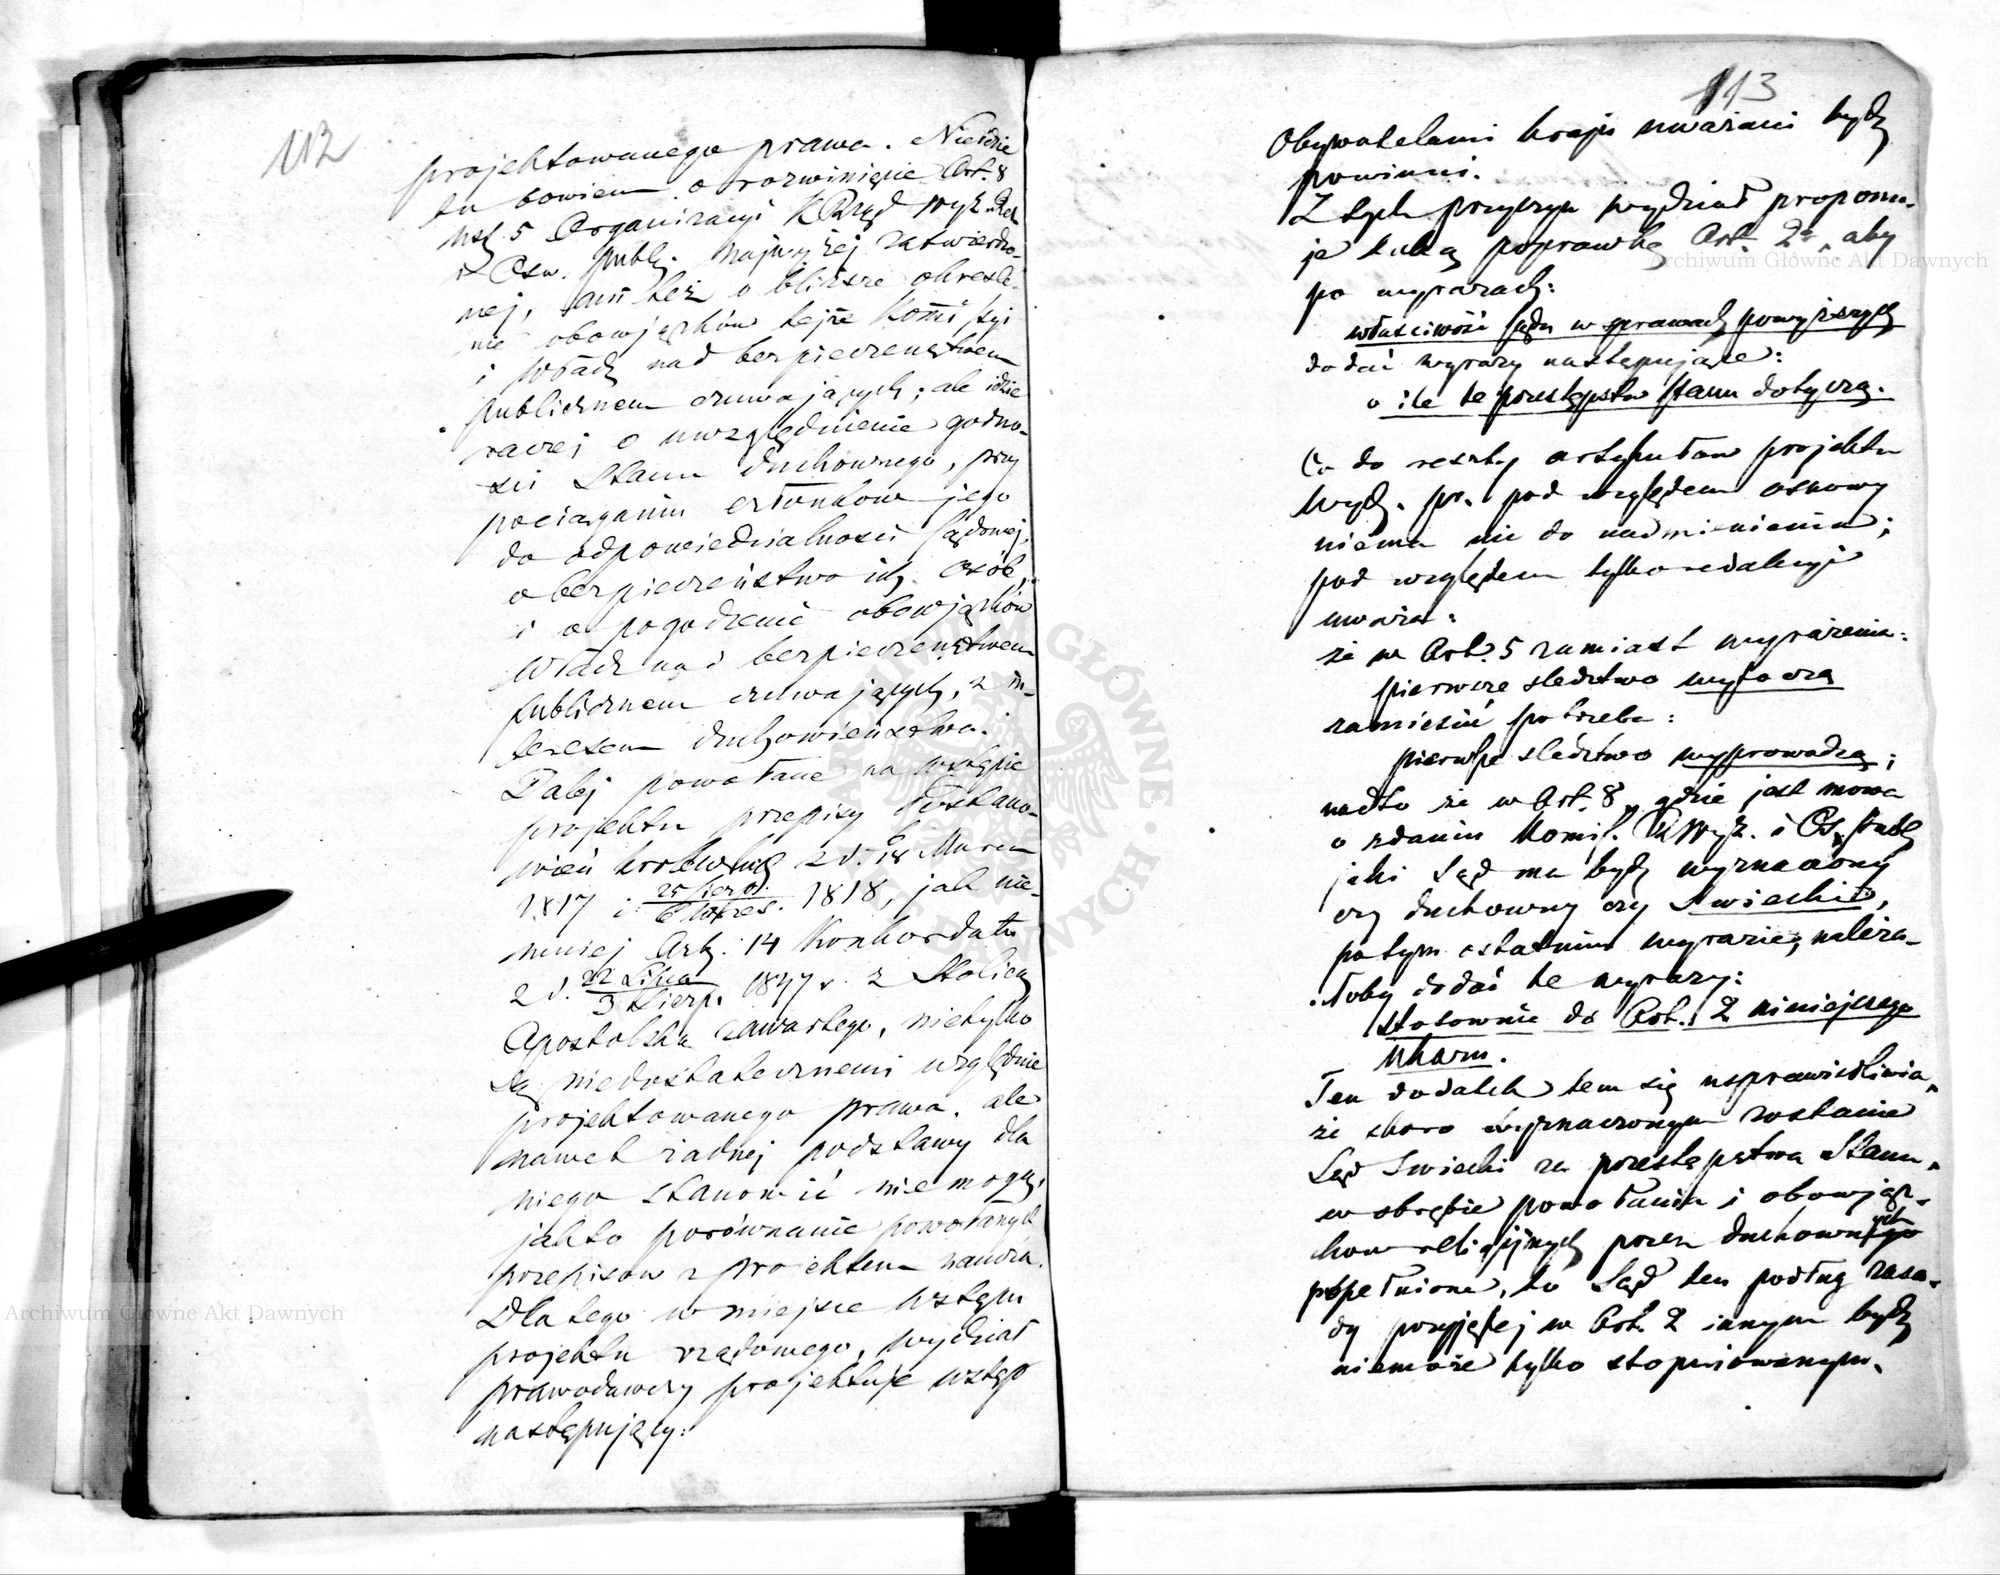 112
projektowanego prawa. Nieidzie
tu bowiem o rozwinięcie Art. 8
ust. 5 Organizacyi K Rząd Wyz. Rel.
i Ośw. publ. Najwyżej zatwierdzo-
nej, ani też o bliższe określe-
nie obowjązków tejże Kommissyi
i Władz nad bezpieczeństwem
publicznem czuwających; ale idzie
raczej o uwzględnienie godno-
ści Stanu duchownego, przy
pociąganiu członków jego
do odpowiedzialności sądowej,
o bezpieczeństwo ich osób,
i o pogodzenie obowjązków
Władz nad bezpieczeństwem
publicznem czuwających, z in-
teresem duchowieństwa.
Dalej powołane na wstępie
projektu przepisy Postano-
wień królewskich z d. 18 Marca
1817 i 25 Sierp. / 6 Wrześ. 1818, jak nie-
mniej Art. 14 Konkordatu
z d. 22 Lipca / 3 Sierp. 1847 r. z Stolicą
Apostolską zawartego, nietylko
są niedostatecznemi względnie
projektowanego prawa, ale
nawet żadnej podstawy dla
niego stanowić niemogą,
jak to porównanie powołanych
przepisow z projektem naucza.
Dlatego w miejsce wstępu
projektu rządowego, wydział
prawodawczy projektuje wstęp
następujący:
113
Obywatelami kraju uważani być
powinni.
Z tych przyczyn wydział proponu-
je taką poprawkę Art. 2o, aby
po wyrazach:
właściwość sądu w sprawach powyższych
dodać wyrazy następujące:
o ile te przestępstw stanu dotyczą.
Co do reszty artykułow projektu
Wydz. pr. pod względem osnowy
niema nic do nadmienienia;
pod względem tylko redakcyi
uważa:
że w Art. 5 zamiast wyrażenia:
pierwsze śledztwo wytoczą
zamieścić potrzeba:
pierwsze śledztwo wyprowadzą;
nadto że w Art. 8, gdzie jest mowa
o zdaniu Komis. R. Wyz. i Oś. publ.
jaki Sąd ma być wyznaczony
czy duchowny czy Swiecki,
po tym ostatnim wyrazie, należa-
łoby dodać te wyrazy:
stosownie do Art. 2 niniejszego
Ukazu.
Ten dodatek tem się usprawiedliwia,
że skoro wyznaczonym zostanie
Sąd Swiecki za przestępstwa Stanu,
w obrębie powołania i obowjąz-
kow religijnych przez duchownych
popełnione, to Sąd ten podług zasa-
dy przyjętej w Art. 2 innym być
niemoże tylko stopniowanym,
Archiwum Główne Akt Dawnych
Archiwum Główne Akt Dawnych